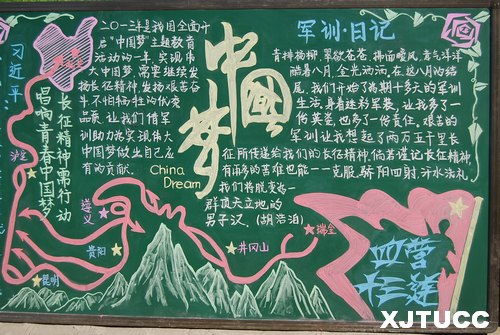 习近平
长征精神需行动
唱响青春中国梦
二〇一三年是我国全面开
启“中国梦”主题教育
活动的一年,实现伟
大中国梦,需要继续发
扬长征精神,发扬艰苦奋
斗不怕牺牲的优秀
品质,让我们借军
训助力为实现伟大
中国梦做出自己应
有的贡献.
中国梦
China
Dream
军训·日记
青排杨柳,翠欲苍苍,拂面暖风,意气洋洋
酷暑八月,金光洒洒,在这八月的结
尾,我们开始了为期十多天的军训
生活,身着迷彩军装,让我多了一
份英姿,也多了一份责任,艰苦的
军训让我想起了两万五千里长
征所传递给我们的长征精神,倘若谨记长征精神,
有再多的苦难也能一一克服,骄阳四射,汗水洗礼
我们将脱变为一
群顶天立地的
男子汉.(胡浩泊)
延安
泸定
遵义
贵阳
昆明
井冈山
瑞金
四营
十三连
XJTUCC